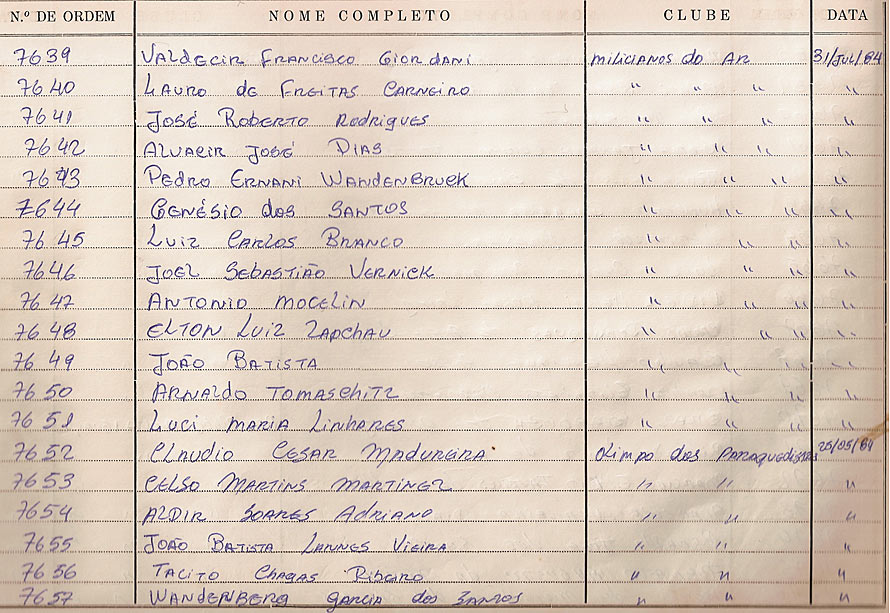 N.º DE ORDEM NOME COMPLETO CLUBE DATA
7639 Valdecir Francisco Giordani milicianos do Ar 31/Jul/64
7640 Lauro de Freitas Carneiro " " " "
7641 José Roberto Rodrigues " " " "
7642 Alvacir José Dias " " " "
7643 Pedro Ernani Wandenbruek " " " "
7644 Genésio dos Santos " " " "
7645 Luiz Carlos Branco " " " "
7646 Joel Sebastião Vernick " " " "
7647 Antonio Mocelin " " " "
7648 Elton Luiz Zapchau " " " "
7649 João Batista " " " "
7650 Arnaldo Tomaschitz " " " "
7651 Luci Maria Linhares " " " "
7652 Claudio Cesar Madureira Olimpo dos Paraquedistas 25/05/64
7653 Celso Martins Martinez " " "
7654 Aldir Soares Adriano " " "
7655 João Batista Lannes Vieira " " "
7656 Tacito Chagas Ribeiro " " "
7657 Wandenberg garcia dos Santos " " "